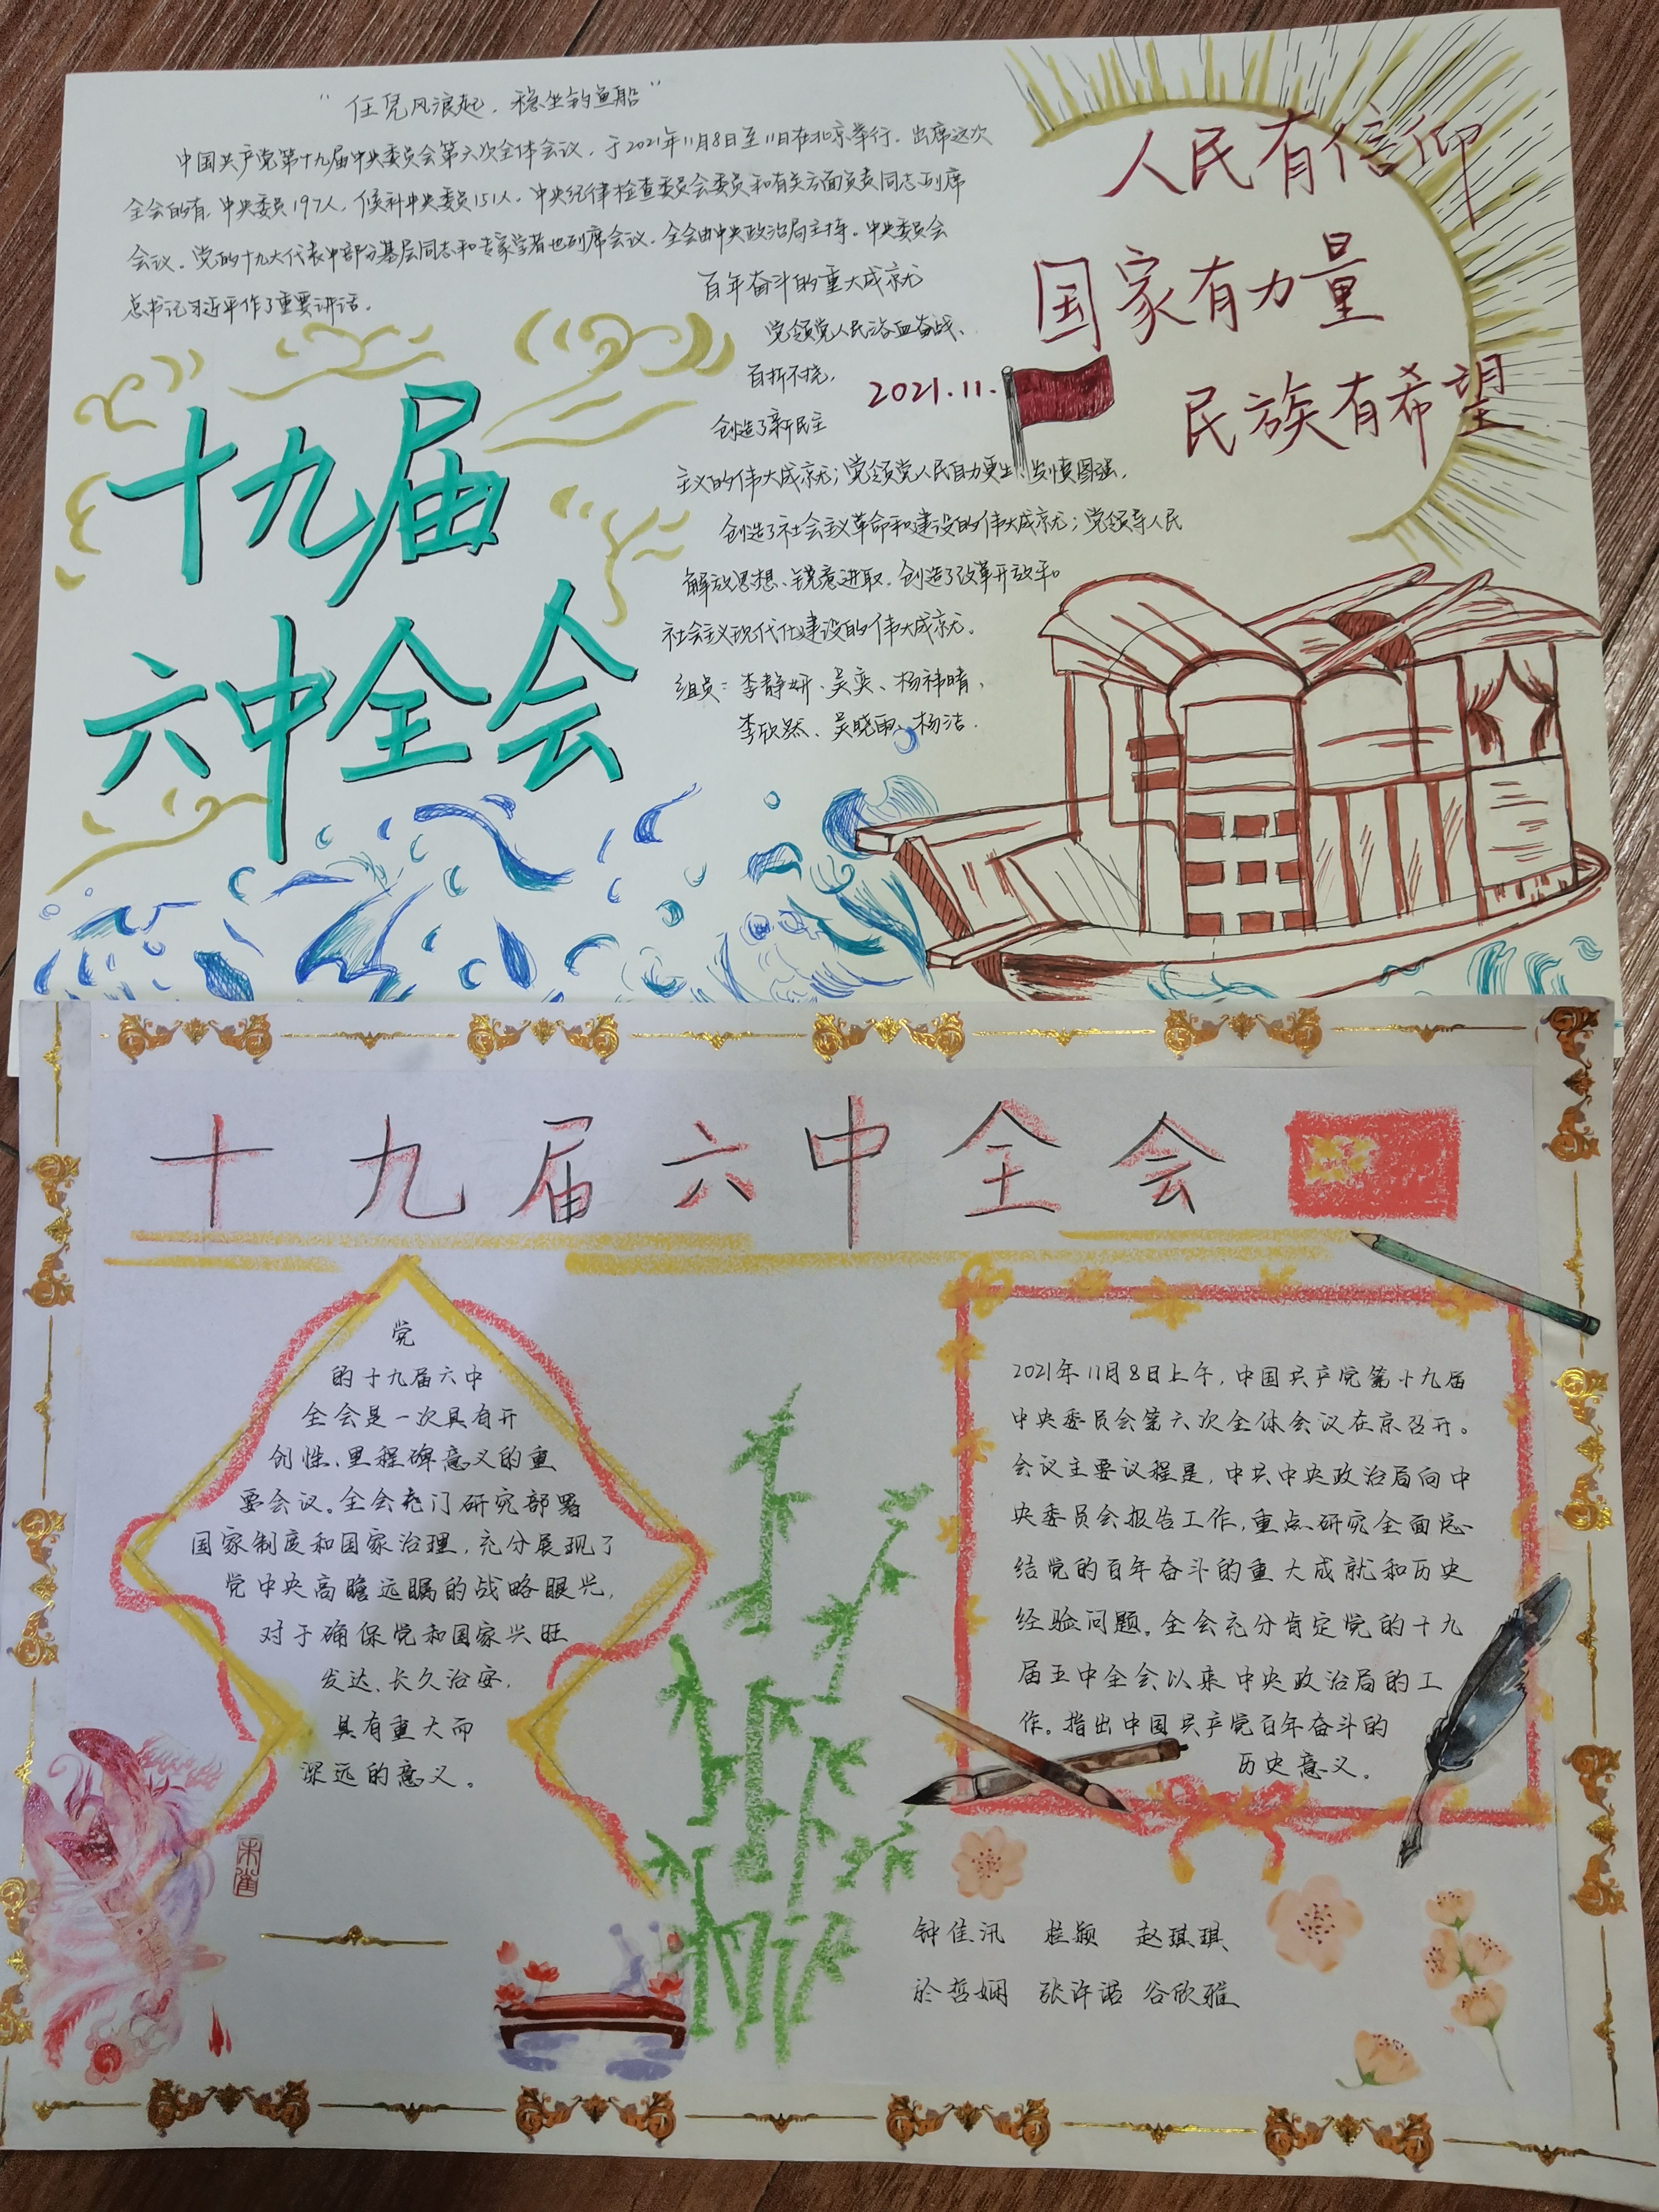 “任凭风浪起，稳坐钓鱼船”
中国共产党第十九届中央委员会第六次全体会议，于2021年11月8日至11日在北京举行。出席这次
全会的有，中央委员197人，候补中央委员151人，中央纪律检查委员会委员和有关方面负责同志列席
会议。党的十九大代表中部分基层同志和专家学者也列席会议。全会由中央政治局主持。中央委员会
总书记习近平作了重要讲话。
人民有信仰
国家有力量
民族有希望
2021.11.
百年奋斗的重大成就
党领党人民浴血奋战、
百折不挠，
创造了新民主
主义的伟大成就；党领党人民自力更生、发愤图强，
创造了社会主义革命和建设的伟大成就；党领导人民
解放思想、锐意进取，创造了改革开放和
社会主义现代化建设的伟大成就。
组员：李静妍、吴奕、杨祎晴、
李欣然、吴晓雨、杨洁.
十九届
六中全会
十九届六中全会
党
的十九届六中
全会是一次具有开
创性、里程碑意义的重
要会议。全会充门研究部署
国家制度和国家治理，充分展现了
党中央高瞻远瞩的战略眼光，
对于确保党和国家兴旺
发达、长久治安，
具有重大而
深远的意义。
朱雀
2021年11月8日上午，中国共产党第十九届
中央委员会第六次全体会议在京召开。
会议主要议程是，中共中央政治局向中
央委员会报告工作，重点研究全面总
结党的百年奋斗的重大成就和历史
经验问题。全会充分肯定党的十九
届五中全会以来中央政治局的工
作。指出中国共产党百年奋斗的
历史意义。
钟佳汛 桂颖 赵琪琪
於哲娴 张许诺 谷欣雅